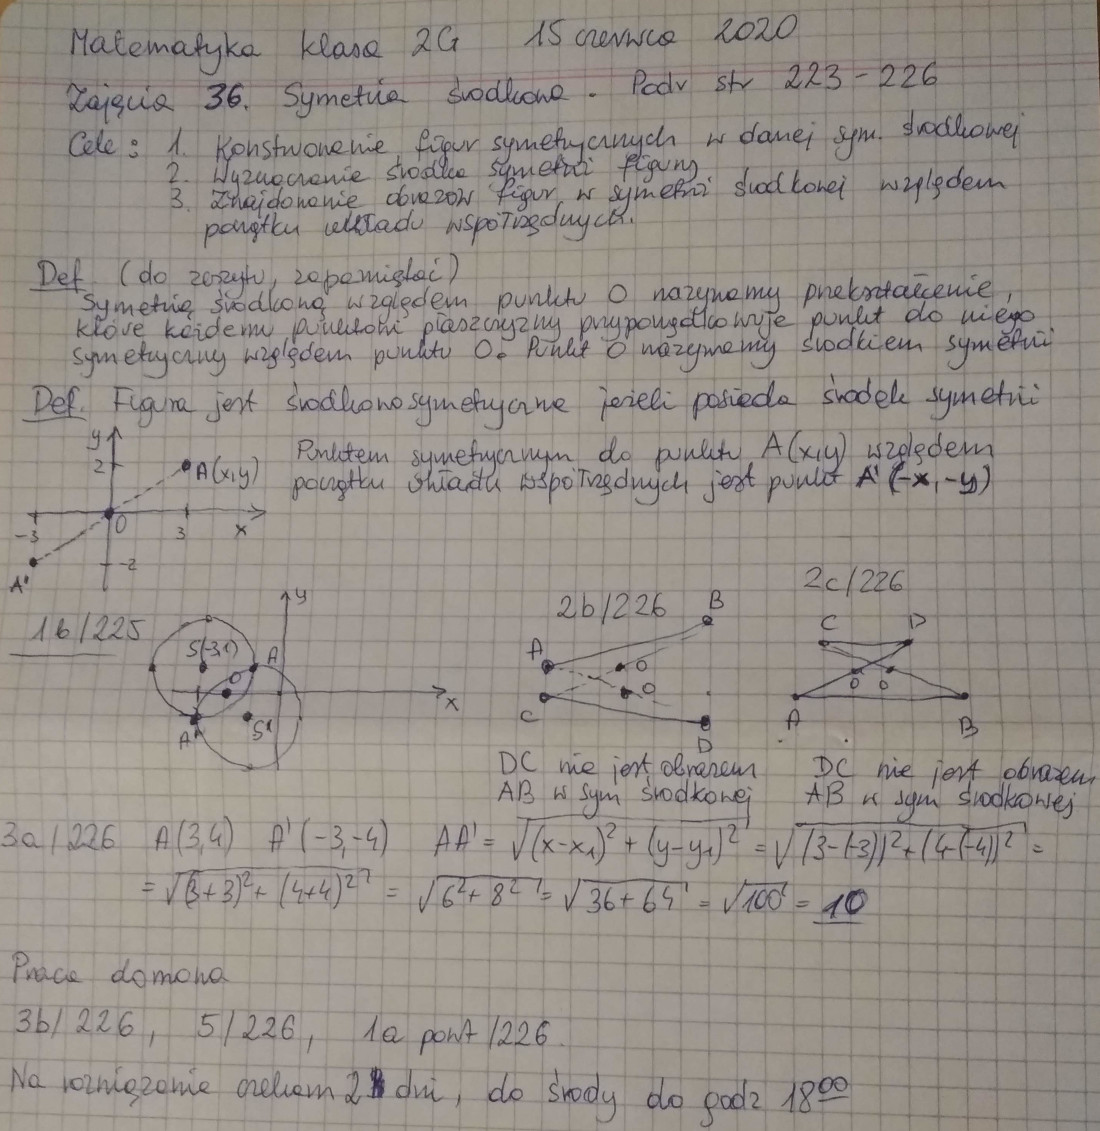 Matematyka klasa 2G 15 czerwca 2020
Zajęcia 36. Symetria środkowa. Podr str 223-226
Cele: 1. Konstruowanie figur symetrycznych w danej sym. środkowej
2. Wyznaczanie środka symetrii figury
3. Znajdowanie obrazów figur w symetrii środkowej względem
początku układu współrzędnych.
Def (do zeszytu, zapamiętać)
Symetrią środkową względem punktu O nazywamy przekształcenie,
które każdemu punktowi płaszczyzny przyporządkowuje punkt do niego
symetryczny względem punktu O. Punkt O nazywamy środkiem symetrii
Def. Figura jest środkowosymetryczna jeżeli posiada środek symetrii
y
2
A(x,y)
Punktem symetrycznym do punktu A(x,y) względem
początku układu współrzędnych jest punkt A'(-x,-y)
-3 0 3 x
A' -2
1b/225
y
S(-3,1) A
O
x
A' S'
2b/226
B
A
O
O
C
D
DC nie jest obrazem
AB w sym środkowej
2c/226
C D
O O
A B
DC nie jest obrazem
AB w sym środkowej
3a/226 A(3,4) A'(-3,-4) AA' = √(x-x₁)² + (y-y₁)² = √(3-(-3))² + (4-(-4))² =
= √(3+3)² + (4+4)² = √6² + 8² = √36+64 = √100 = 10
Praca domowa
3b/226, 5/226, 1a powt/226.
Na rozwiązanie czekam 2 dni, do środy do godz 18⁰⁰